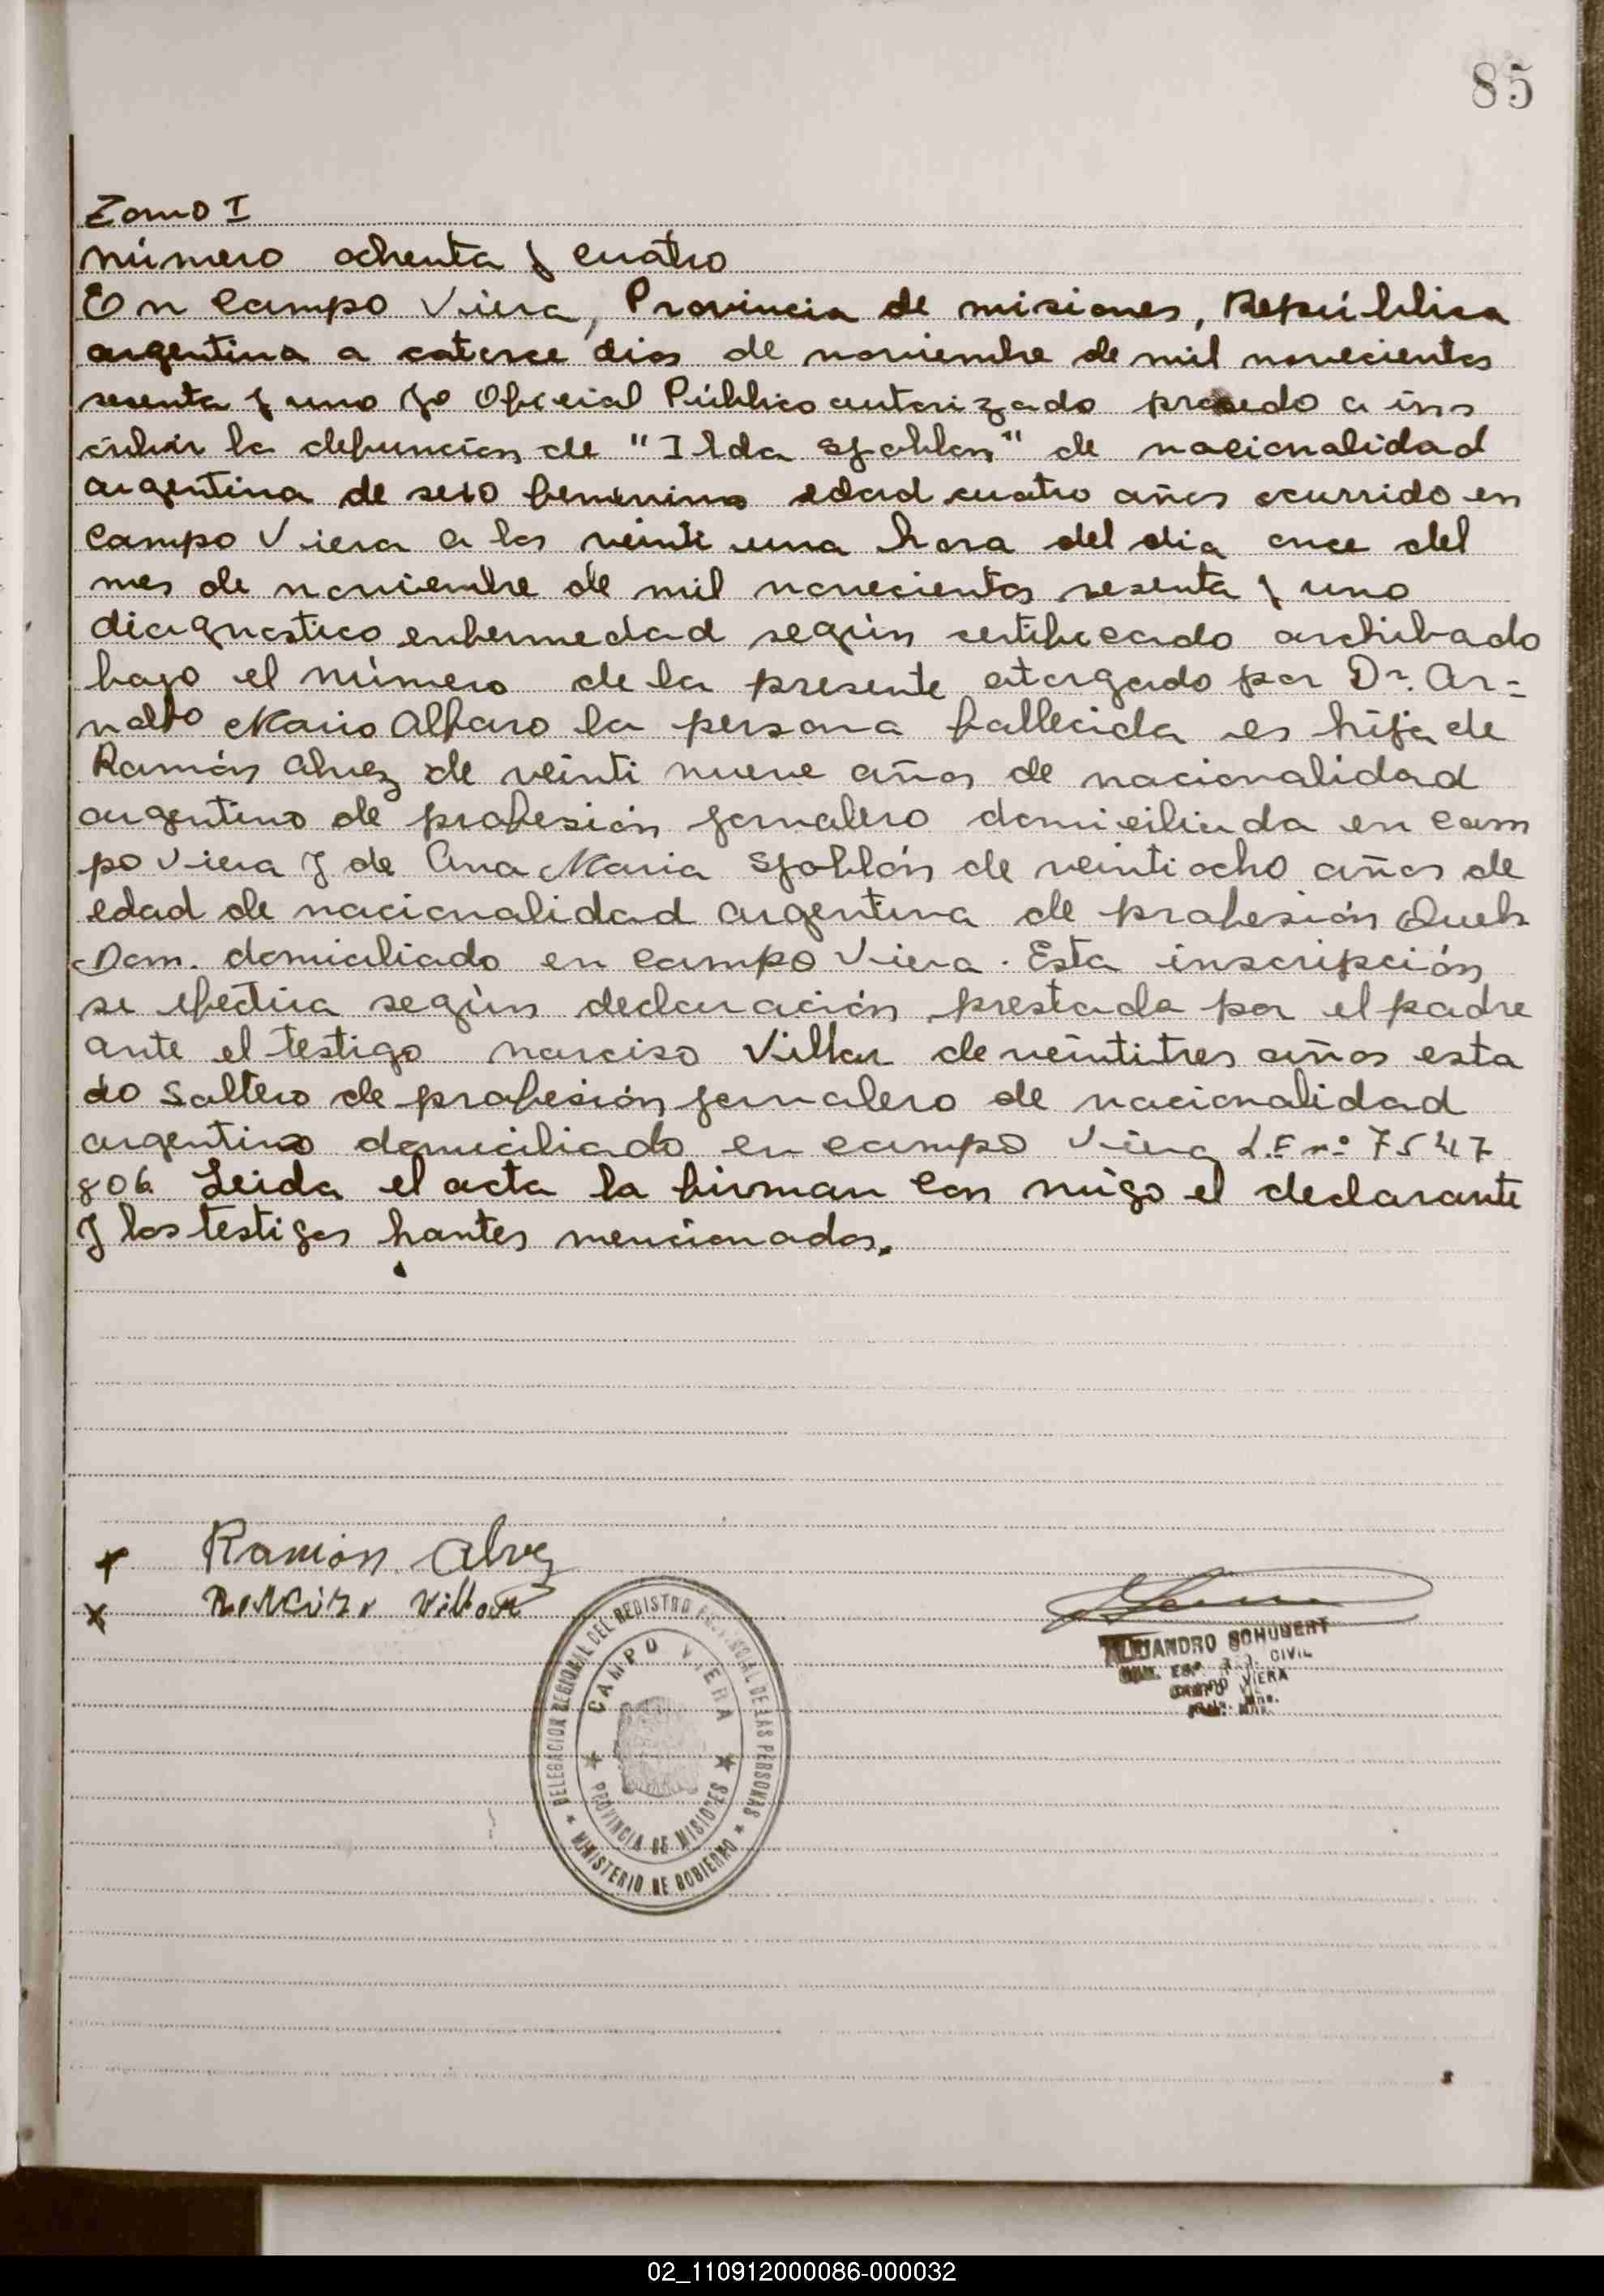 85
Tomo I
número ochenta y cuatro
En Campo Viera, Provincia de misiones, República
argentina a catorce dias de noviembre de mil novecientos
sesenta y uno yo Oficial Público autorizado procedo a ins
cribir la defuncion de "Ilda Sjoblon" de nacionalidad
argentina de sexo femenino edad cuatro años ocurrido en
Campo Viera a las veinti una hora del dia once del
mes de noviembre de mil novecientos sesenta y uno
diagnostico enfermedad según certificado archibado
bajo el número de la presente otorgado por Dr. Ar=
naldo Mario Alfaro la persona fallecida es hija de
Ramón Alvez de veinti nueve años de nacionalidad
argentino de profesión jornalero domiciliada en Cam
po Viera y de Ana Maria Sjoblón de veintiocho años de
edad de nacionalidad argentina de profesión Queh
Dom. domiciliado en Campo Viera. Esta inscripción
se efectua según declaración prestada por el padre
ante el testigo narciso Villar de veintitres años esta
do Soltero de profesión jornalero de nacionalidad
argentino domiciliado en campo Viera L.E nº 7547
806 Leida el acta la firman con migo el declarante
y los testigos hantes mencionados.
x Ramón Alvez
x Narciso Villar
DELEGACION REGIONAL DEL REGISTRO PROVINCIAL DE LAS PERSONAS
CAMPO VIERA
PROVINCIA DE MISIONES
MINISTERIO DE GOBIERNO
ALEJANDRO SCHUBERT
CIVIL
CAMPO VIERA
02_110912000086-000032